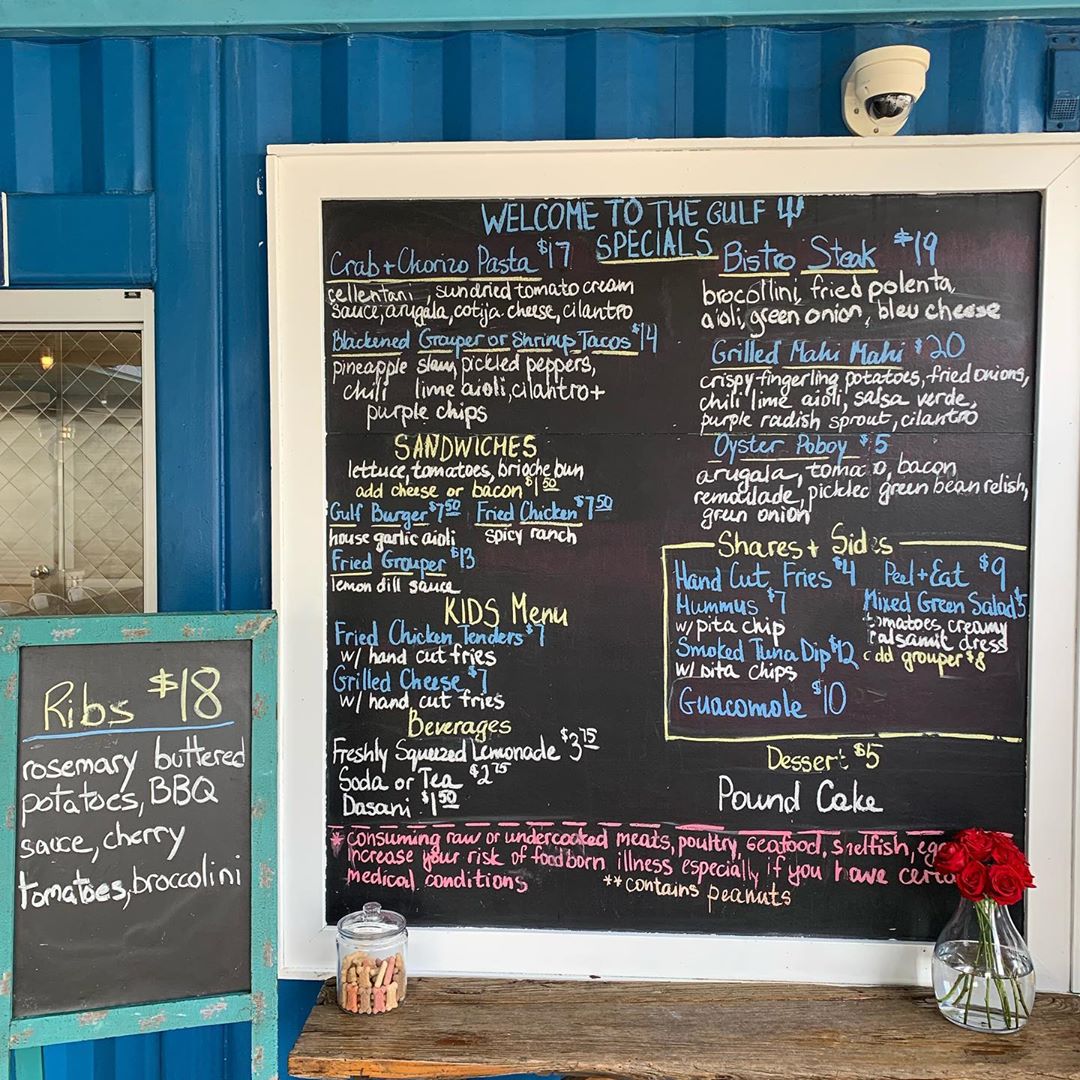 WELCOME TO THE GULF
SPECIALS
Crab + Chorizo Pasta $17
cellentani, sundried tomato cream
sauce, arugala, cotija cheese, cilantro
Blackened Grouper or Shrimp Tacos $14
pineapple slaw, pickled peppers,
chili lime aioli, cilantro +
purple chips
SANDWICHES
lettuce, tomatoes, brioche bun
add cheese or bacon $1.50
Gulf Burger $7.50 Fried Chicken $7.50
house garlic aioli spicy ranch
Fried Grouper $13
lemon dill sauce
KIDS Menu
Fried Chicken Tenders $7
w/ hand cut fries
Grilled Cheese $7
w/ hand cut fries
Beverages
Freshly Squeezed Lemonade $3.75
Soda or Tea $2.75
Dasani $1.50
Bistro Steak $19
brocollini, fried polenta,
aioli, green onion, bleu cheese
Grilled Mahi Mahi $20
crispy fingerling potatoes, fried onions,
chili lime aioli, salsa verde,
purple radish sprout, cilantro
Oyster Poboy $5
arugala, bacon
pickled green bean relish,
green onion
Shares + Sides
Hand Cut Fries $4 Peel + Eat $9
$7 Mixed Green Salad $5
w/ pita chip tomatoes, creamy
Smoked Tuna Dip $12 dress
w/ pita chips add grouper $8
Guacomole $10
Dessert $5
Pound Cake
* consuming raw or undercooked meats, poultry, seafood, shelfish,
increase your risk of foodborn illness especially if you have
medical conditions
**contains peanuts
Ribs $18
rosemary buttered
potatoes, BBQ
sauce, cherry
tomatoes, broccolini